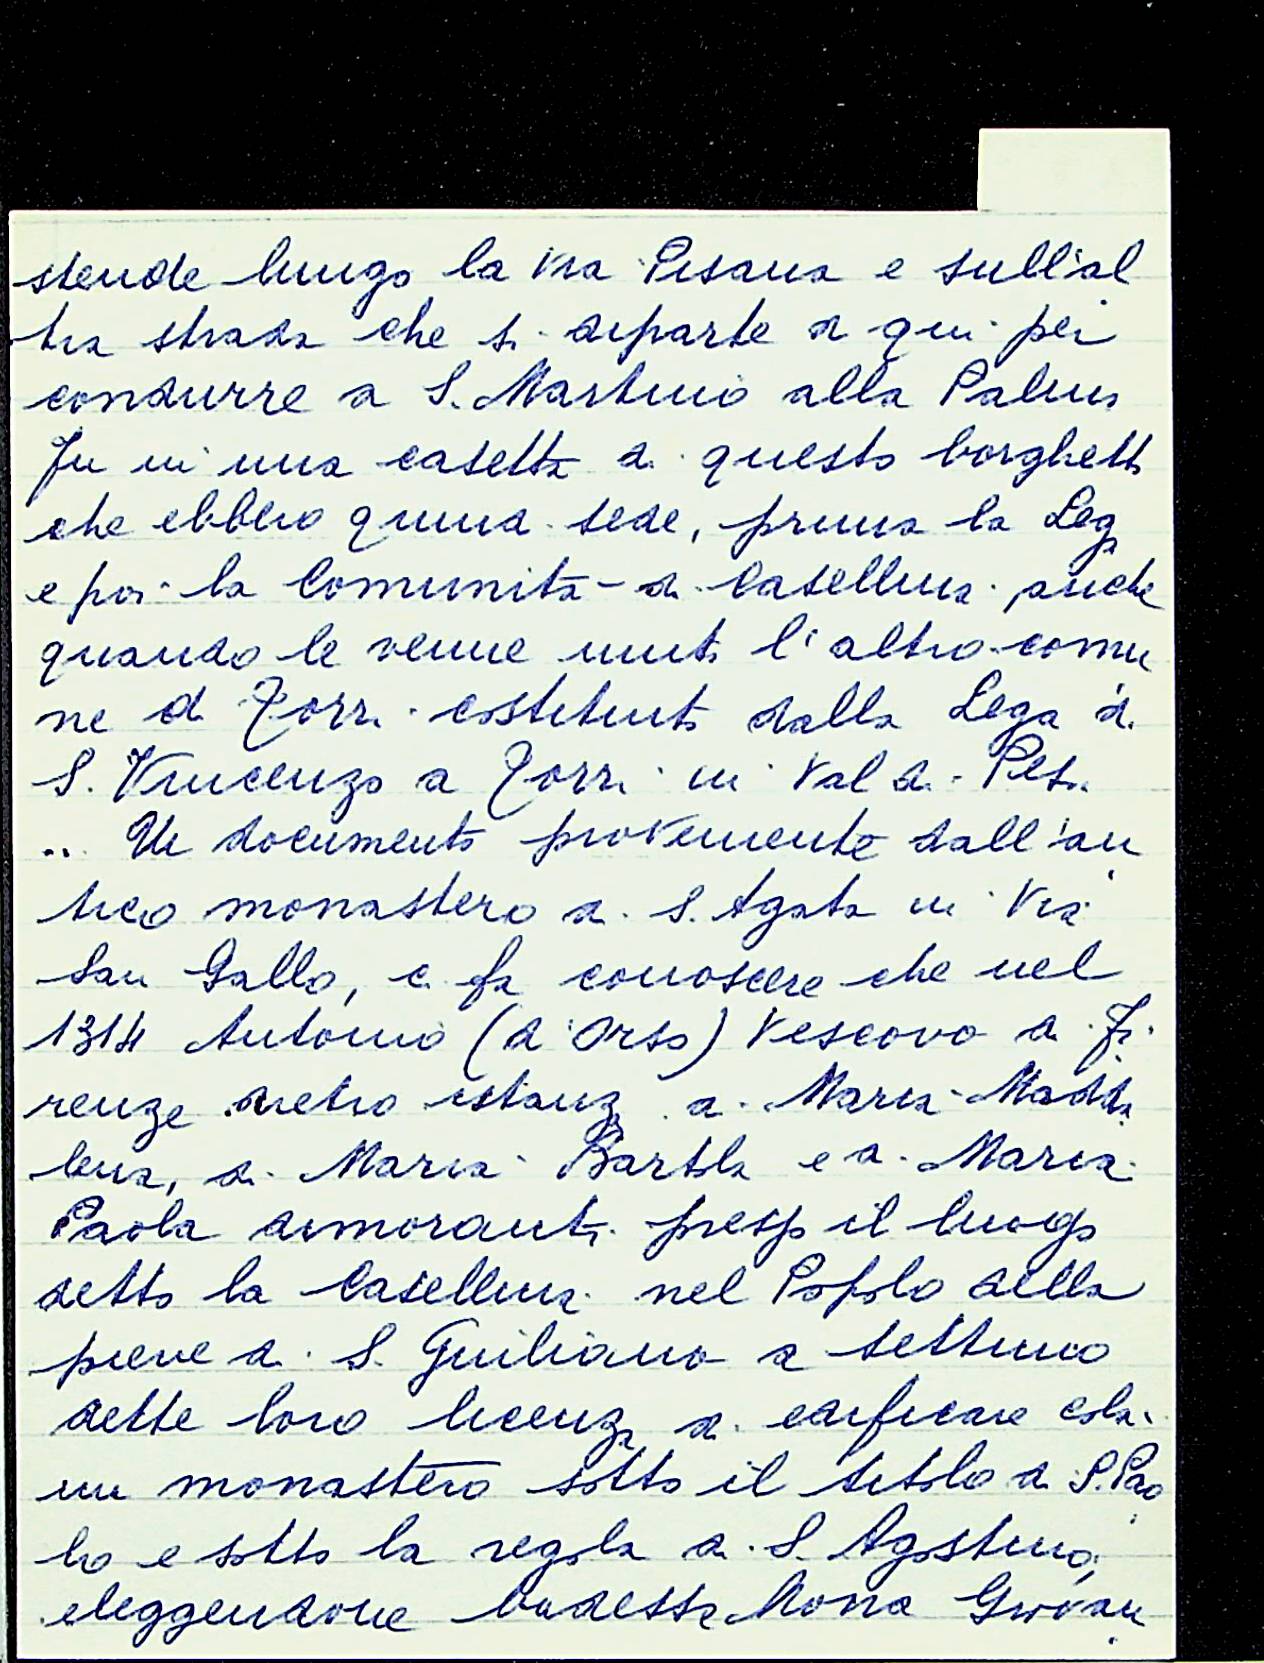 stende lungo la via Pisana e sull'al
tra strada che si diparte di qui per
condurre a S. Martino alla Palma
Fu in una casetta di questo borghetto
che ebbero quindi sede, prima la Lega
e poi la Comunità di Casellina anche
quando le venne unito l'altro comu
ne di Torri costituito dalla Lega di
S. Vincenzo a Torri in Val di Pesa
.. Un documento proveniente dall'an
tico monastero di S. Agata in Via
San Gallo, ci fa conoscere che nel
1314 Antonio (d'Orso) Vescovo di Fi
renze dietro istanza di Maria Madda
lena, di Maria Bartola e di Maria
Paola dimoranti presso il luogo
detto la Casellina nel Popolo della
pieve di S. Giuliano a Settimo
dette loro licenza di edificare colà
un monastero sotto il titolo di S. Pao
lo e sotto la regola di S. Agostino,
eleggendone badessa Mona Giovan